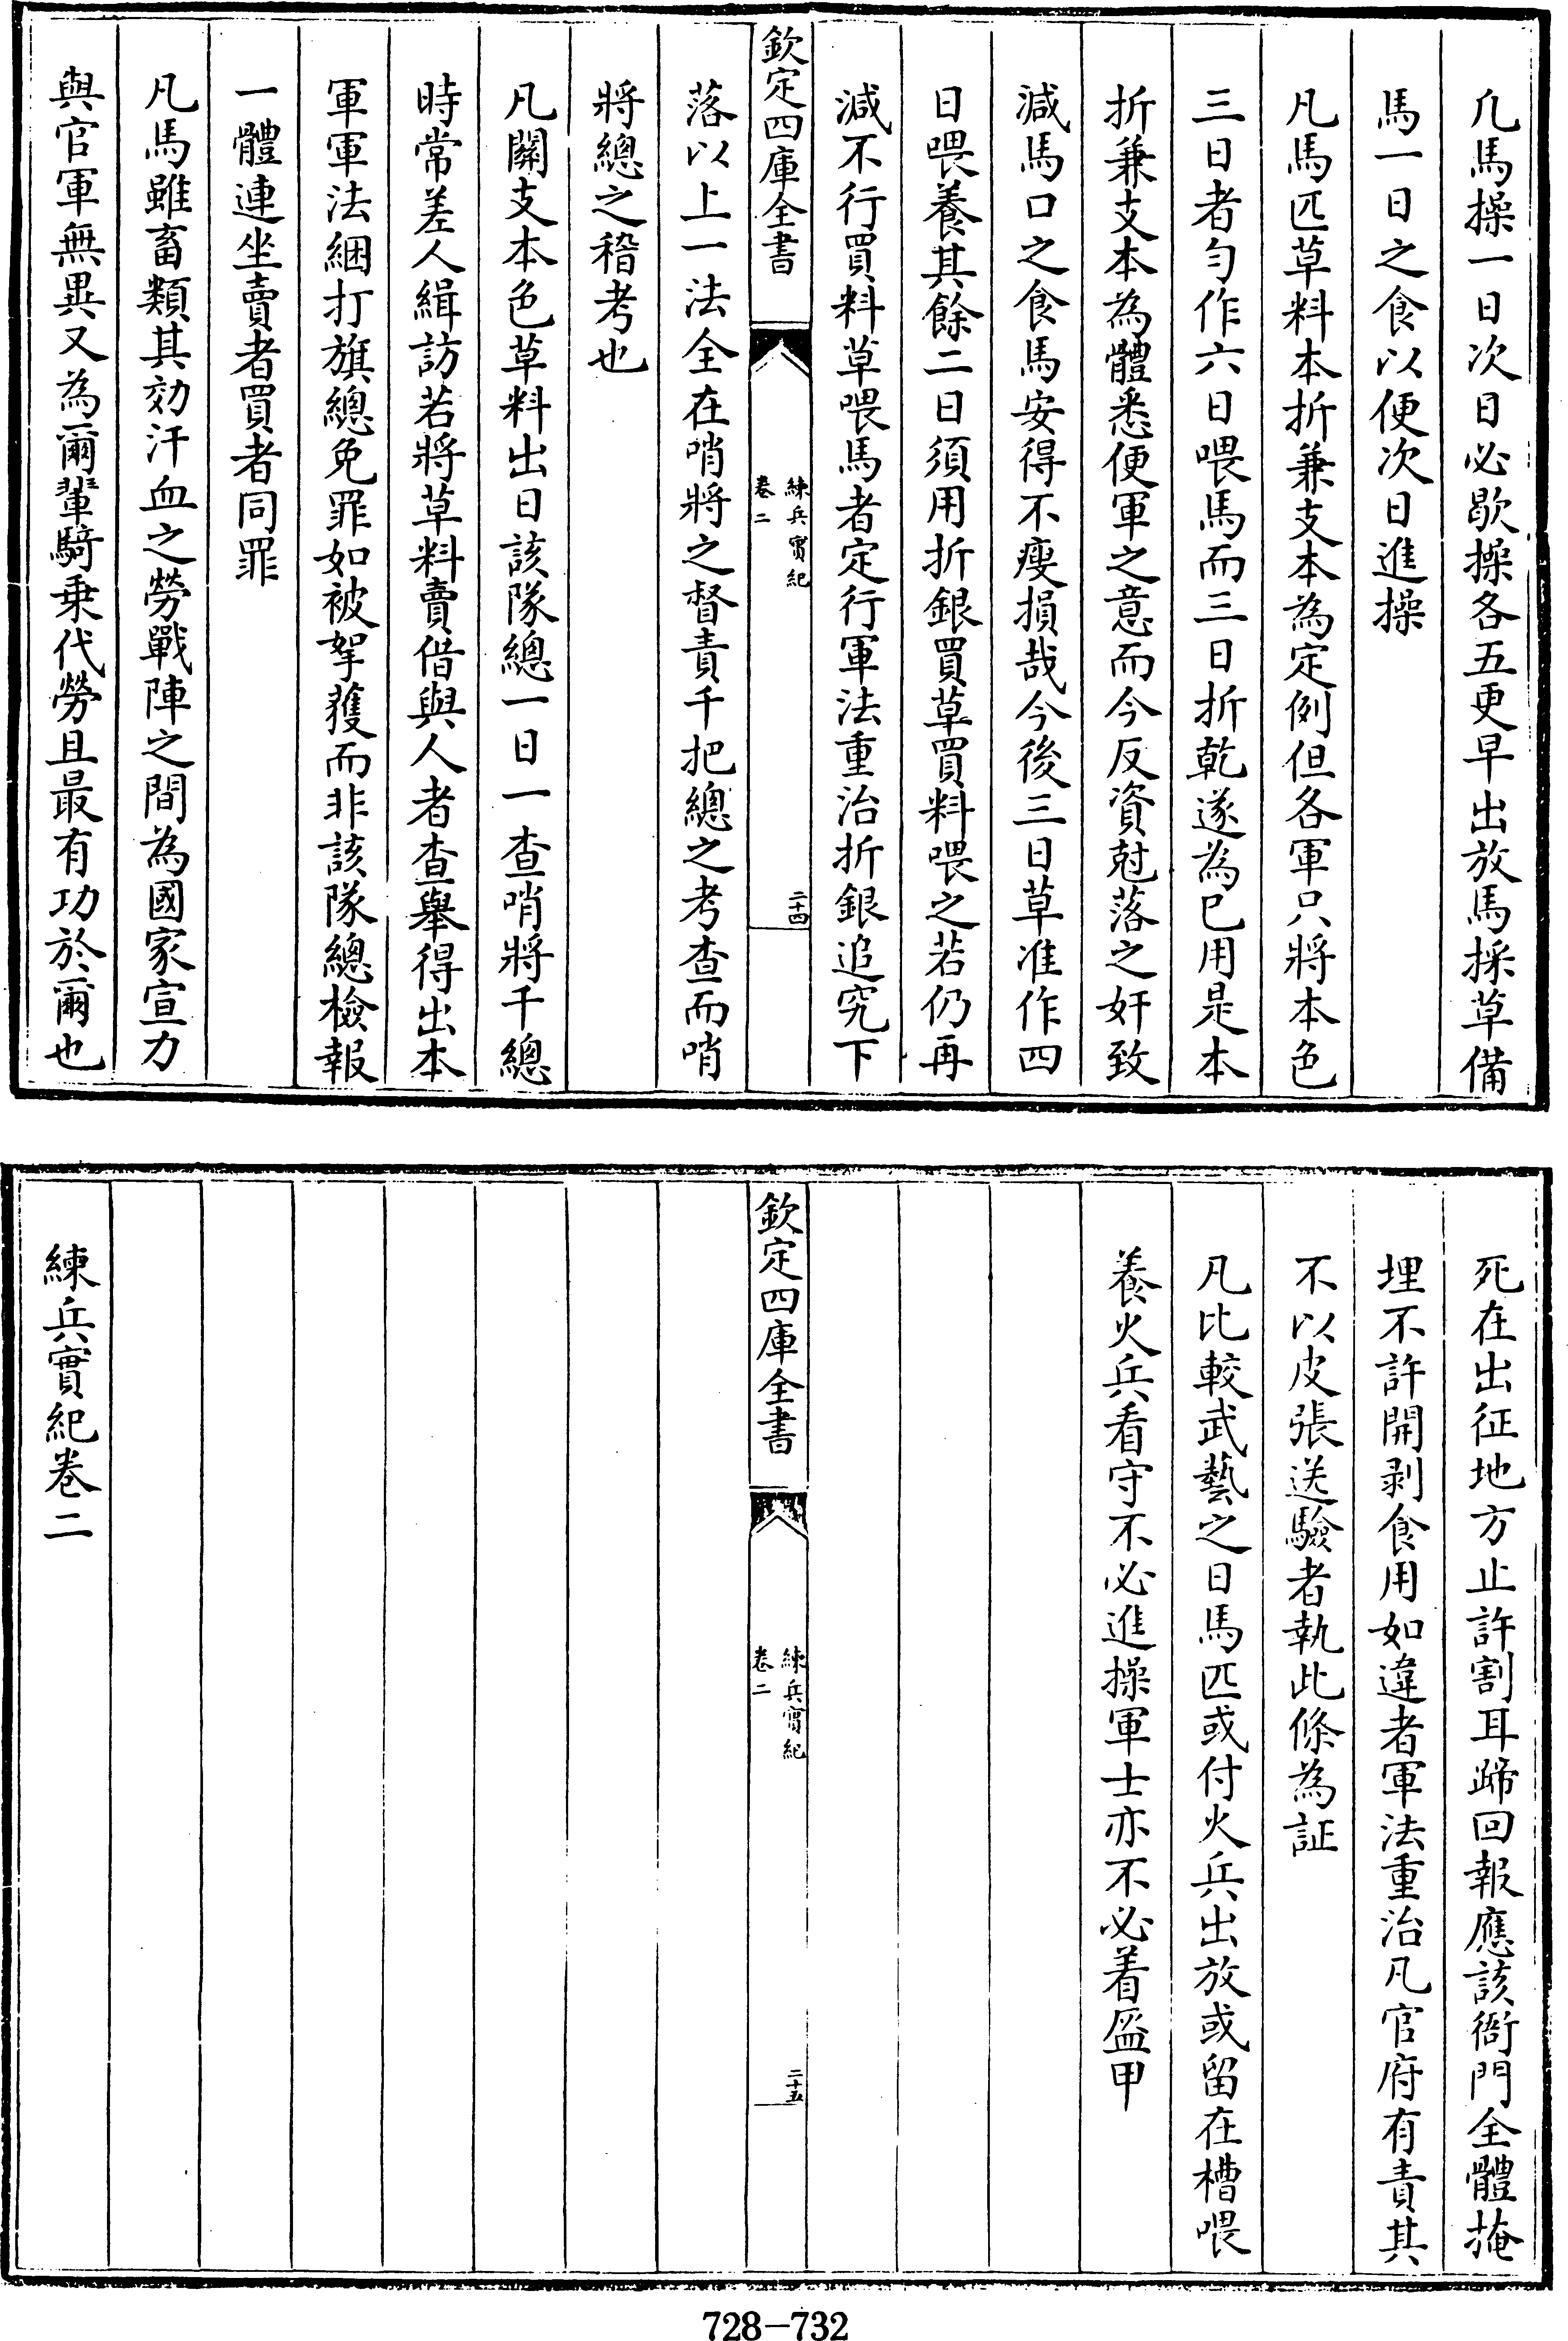 凢馬操一日次日必歇操各五更早出放馬採草備
馬一日之食以便次日進操
凡馬匹草料本折兼支本為定例但各軍只將本色
三日者勻作六日喂馬而三日折乾遂為已用是本
折兼支本為體悉便軍之意而今反資尅落之奸致
減馬口之食馬安得不瘦損哉今後三日草准作四
日喂養其餘二日須用折銀買草買料喂之若仍再
減不行買料草喂馬者定行軍法重治折銀追究下
欽定四庫全書
練兵實紀
卷二
二十四
落以上一法全在哨將之督責千把總之考查而哨
將總之稽考也
凡關支本色草料出日該隊總一日一查哨將千總
時常差人緝訪若將草料賣借與人者查舉得出本
軍軍法綑打旗總免罪如被拏獲而非該隊總檢報
一體連坐賣者買者同罪
凡馬雖畜類其効汗血之勞戰陣之間為國家宣力
與官軍無異又為爾輩騎乗代勞且最有功於爾也
死在出征地方止許割耳蹄回報應該衙門全體掩
埋不許開剥食用如違者軍法重治凡官府有責其
不以皮張送驗者執此條為証
凡比較武藝之日馬匹或付火兵出放或留在槽喂
養火兵看守不必進操軍士亦不必着盔甲
欽定四庫全書
練兵實紀
卷二
二十五
練兵實紀卷二
728-732